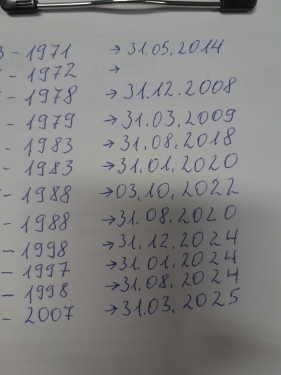 3 - 1971 → 31.05.2014
- 1972 →
- 1978 → 31.12.2008
- 1979 → 31.03.2009
- 1983 → 31.08.2018
- 1983 → 31.01.2020
- 1988 → 03.10.2022
- 1988 → 31.08.2020
- 1998 → 31.12.2024
- 1997 → 31.01.2024
- 1998 → 31.08.2024
- 2007 → 31.03.2025